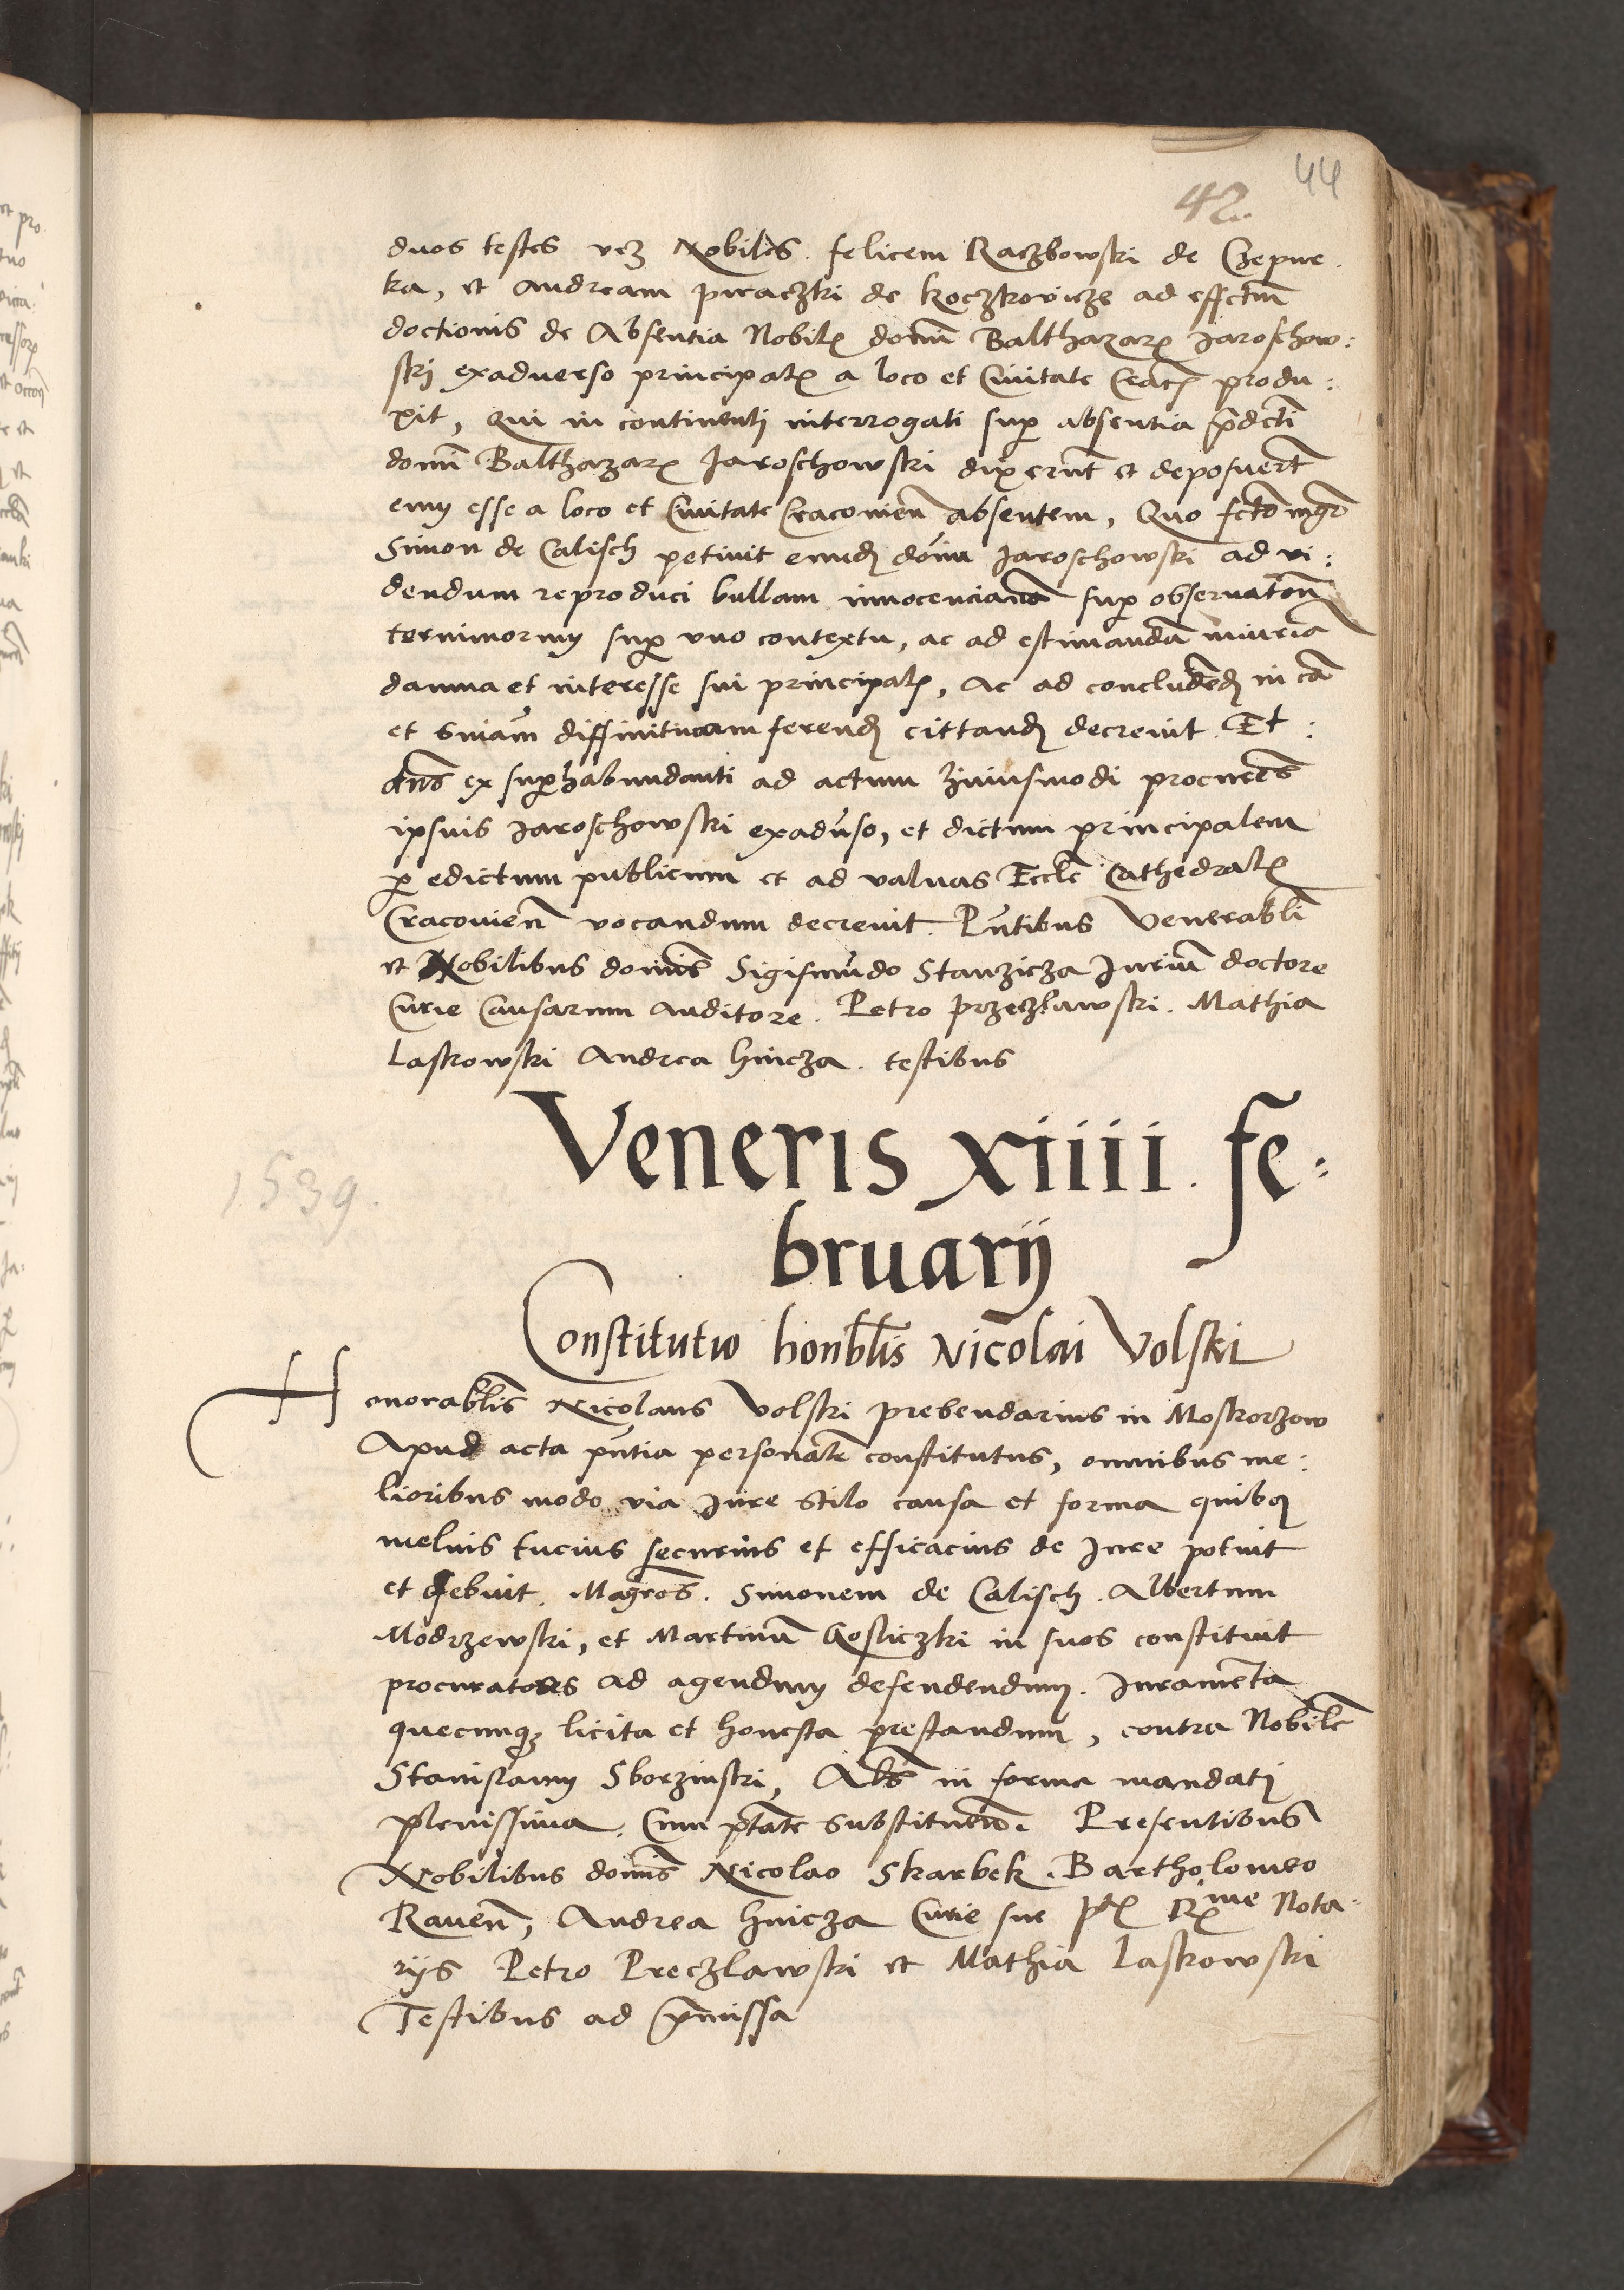 44
42.
duos testes vcz Nobiles. felicem Raczkowski de Czepne
ka, et Andream piraczki de Koczkovicze ad effctm̄
doctionis de Absentia Nobilꝭ domī Balthazarꝭ Jaroschow:
skj exaduerso principalꝭ a loco et Civitate Cracꝭ produ:
xit, Qui in continentj interrogati supꝑ absentia p̄dctī
domī Balthazarꝭ Jaroschowski dixernt̄ et deposuert̄
eum esse a loco et Civitate Cracovien̄ absentem, Quo fctō mgr̄
Simon de Calisch petivit eundꝭ domī Jaroschowski ad vi:
dendum reproduci bullam innocencianā supꝑ obseruatōn̄
terminorum supꝑ vno contextu, ac ad estimandā iniuriā
damna et interesse sui principalꝭ, Ac ad concludēdꝭ in cā
et sniām diffinitiuam ferendꝭ cittandꝭ decreuit. Et:
dn̄s ex suprhabundanti ad actum huiusmodi
ipsius Jaroschowski exadūso, et dictum principalem
ꝑ edictum publicum et ad valuas Eccle Cathedralꝭ
Cracouien̄ vocandum decreuit. Pn̄tibus Venerabli
et Nobilibus domīs Sigismūdo Stanzicza Juriū doctore
Curie Causarum Auditore. Petro przeczlawski. Mathia
Laskowski Andrea hincza. testibus
Veneris xiiii. fe:
bruarij
1539.
Constitutio honblis̄ Nicolai Volski
Honorablis̄ Nicolaus Volski prebendarius in Moskorzow
Apud acta pn̄tia personalr̄ constitutus, omnibus me:
lioribus modo via Jure stilo causa et forma quibꝰ
melius tucius securius et efficacius de Jure potuit
et debuit. Magros̄. Simonem de Calisch. Albertum
Modrzewski, et Martinū Gosliczki in suos constituit
procuratores ad agendum defendendum. Juramenta
quecunqꝫ licita et honesta prestandum, contra Nobilē
Stanislaum Sborzinski, Als̄ in forma mandatj
plenissima. Cum ptāte substituen̄. Presentibus
Nobilibus domīs Nicolao Skarbek. Bartholomeo
Rauen̄, Andrea hincza Curie sue ptꝭ Rꝭme Nota
rijs Petro Preczlawski et Mathia Laskowski
Testibus ad p̄missa